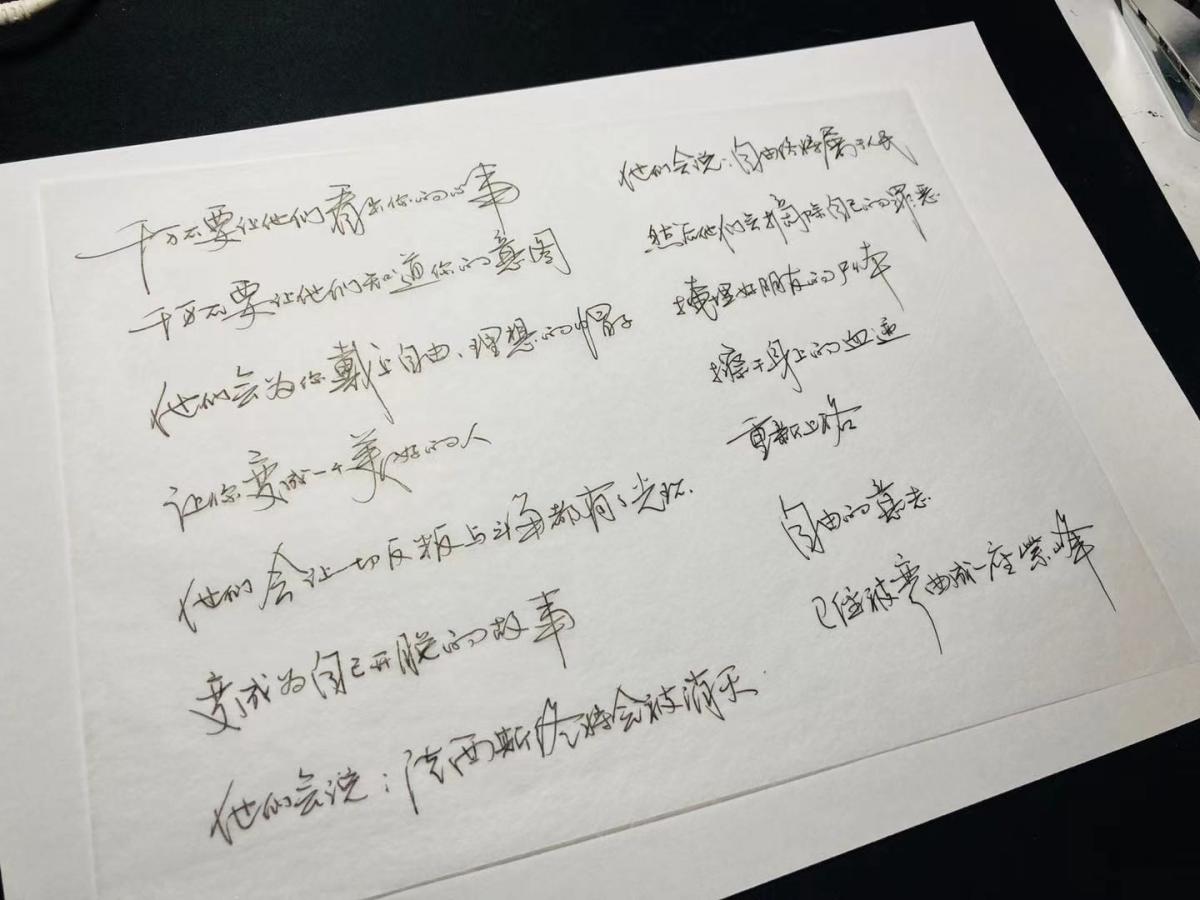 千万不要让他们看出你的心事
千万不要让他们知道你的意图
他们会为你戴上自由、理想的帽子
让你变成一个美好的人
他们会让一切反叛与斗角都有了光环
变成为自己开脱的故事
他们会说：法西斯终将会被消灭
他们会说：自由终将属于人民
然后他们会摘除自己的罪恶
理好朋友的
擦干身上的血迹
重新上路
自由的意志
已经被弯曲成一座紫峰